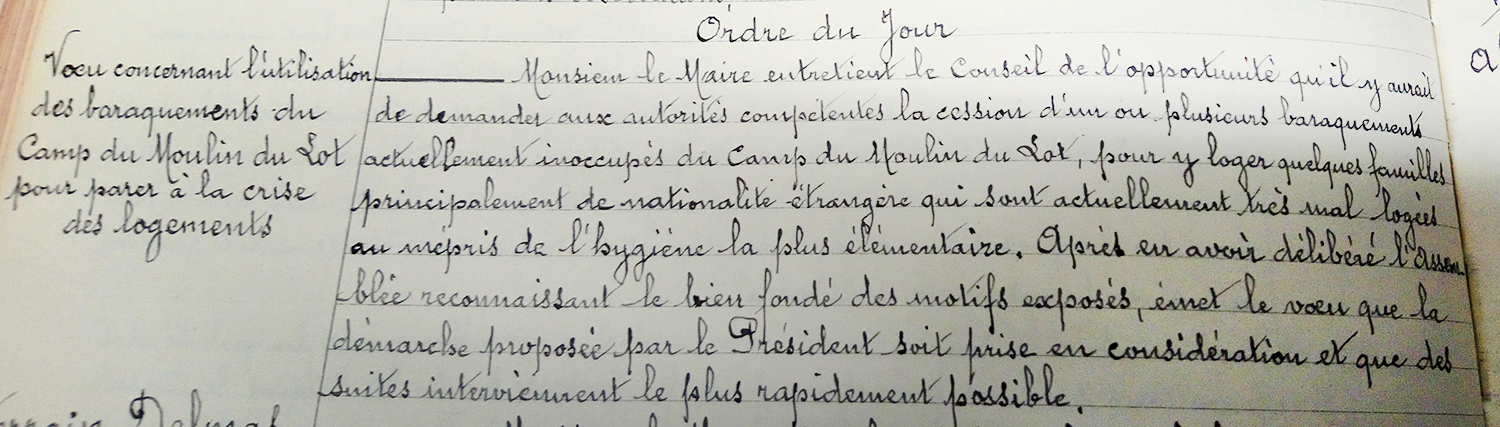 Ordre du Jour
Vœu concernant l'utilisation
des baraquements du
Camp du Moulin du Lot
pour parer à la crise
des logements
Monsieur le Maire entretient le Conseil de l'opportunité qu'il y aurait
de demander aux autorités compétentes la cession d'un ou plusieurs baraquements
actuellement inoccupés du Camp du Moulin du Lot, pour y loger quelques familles
principalement de nationalité étrangère qui sont actuellement très mal logées
au mépris de l'hygiène la plus élémentaire. Après en avoir délibéré l'Assem-
blée reconnaissant le bien fondé des motifs exposés, émet le vœu que la
démarche proposée par le Président soit prise en considération et que des
suites interviennent le plus rapidement possible.